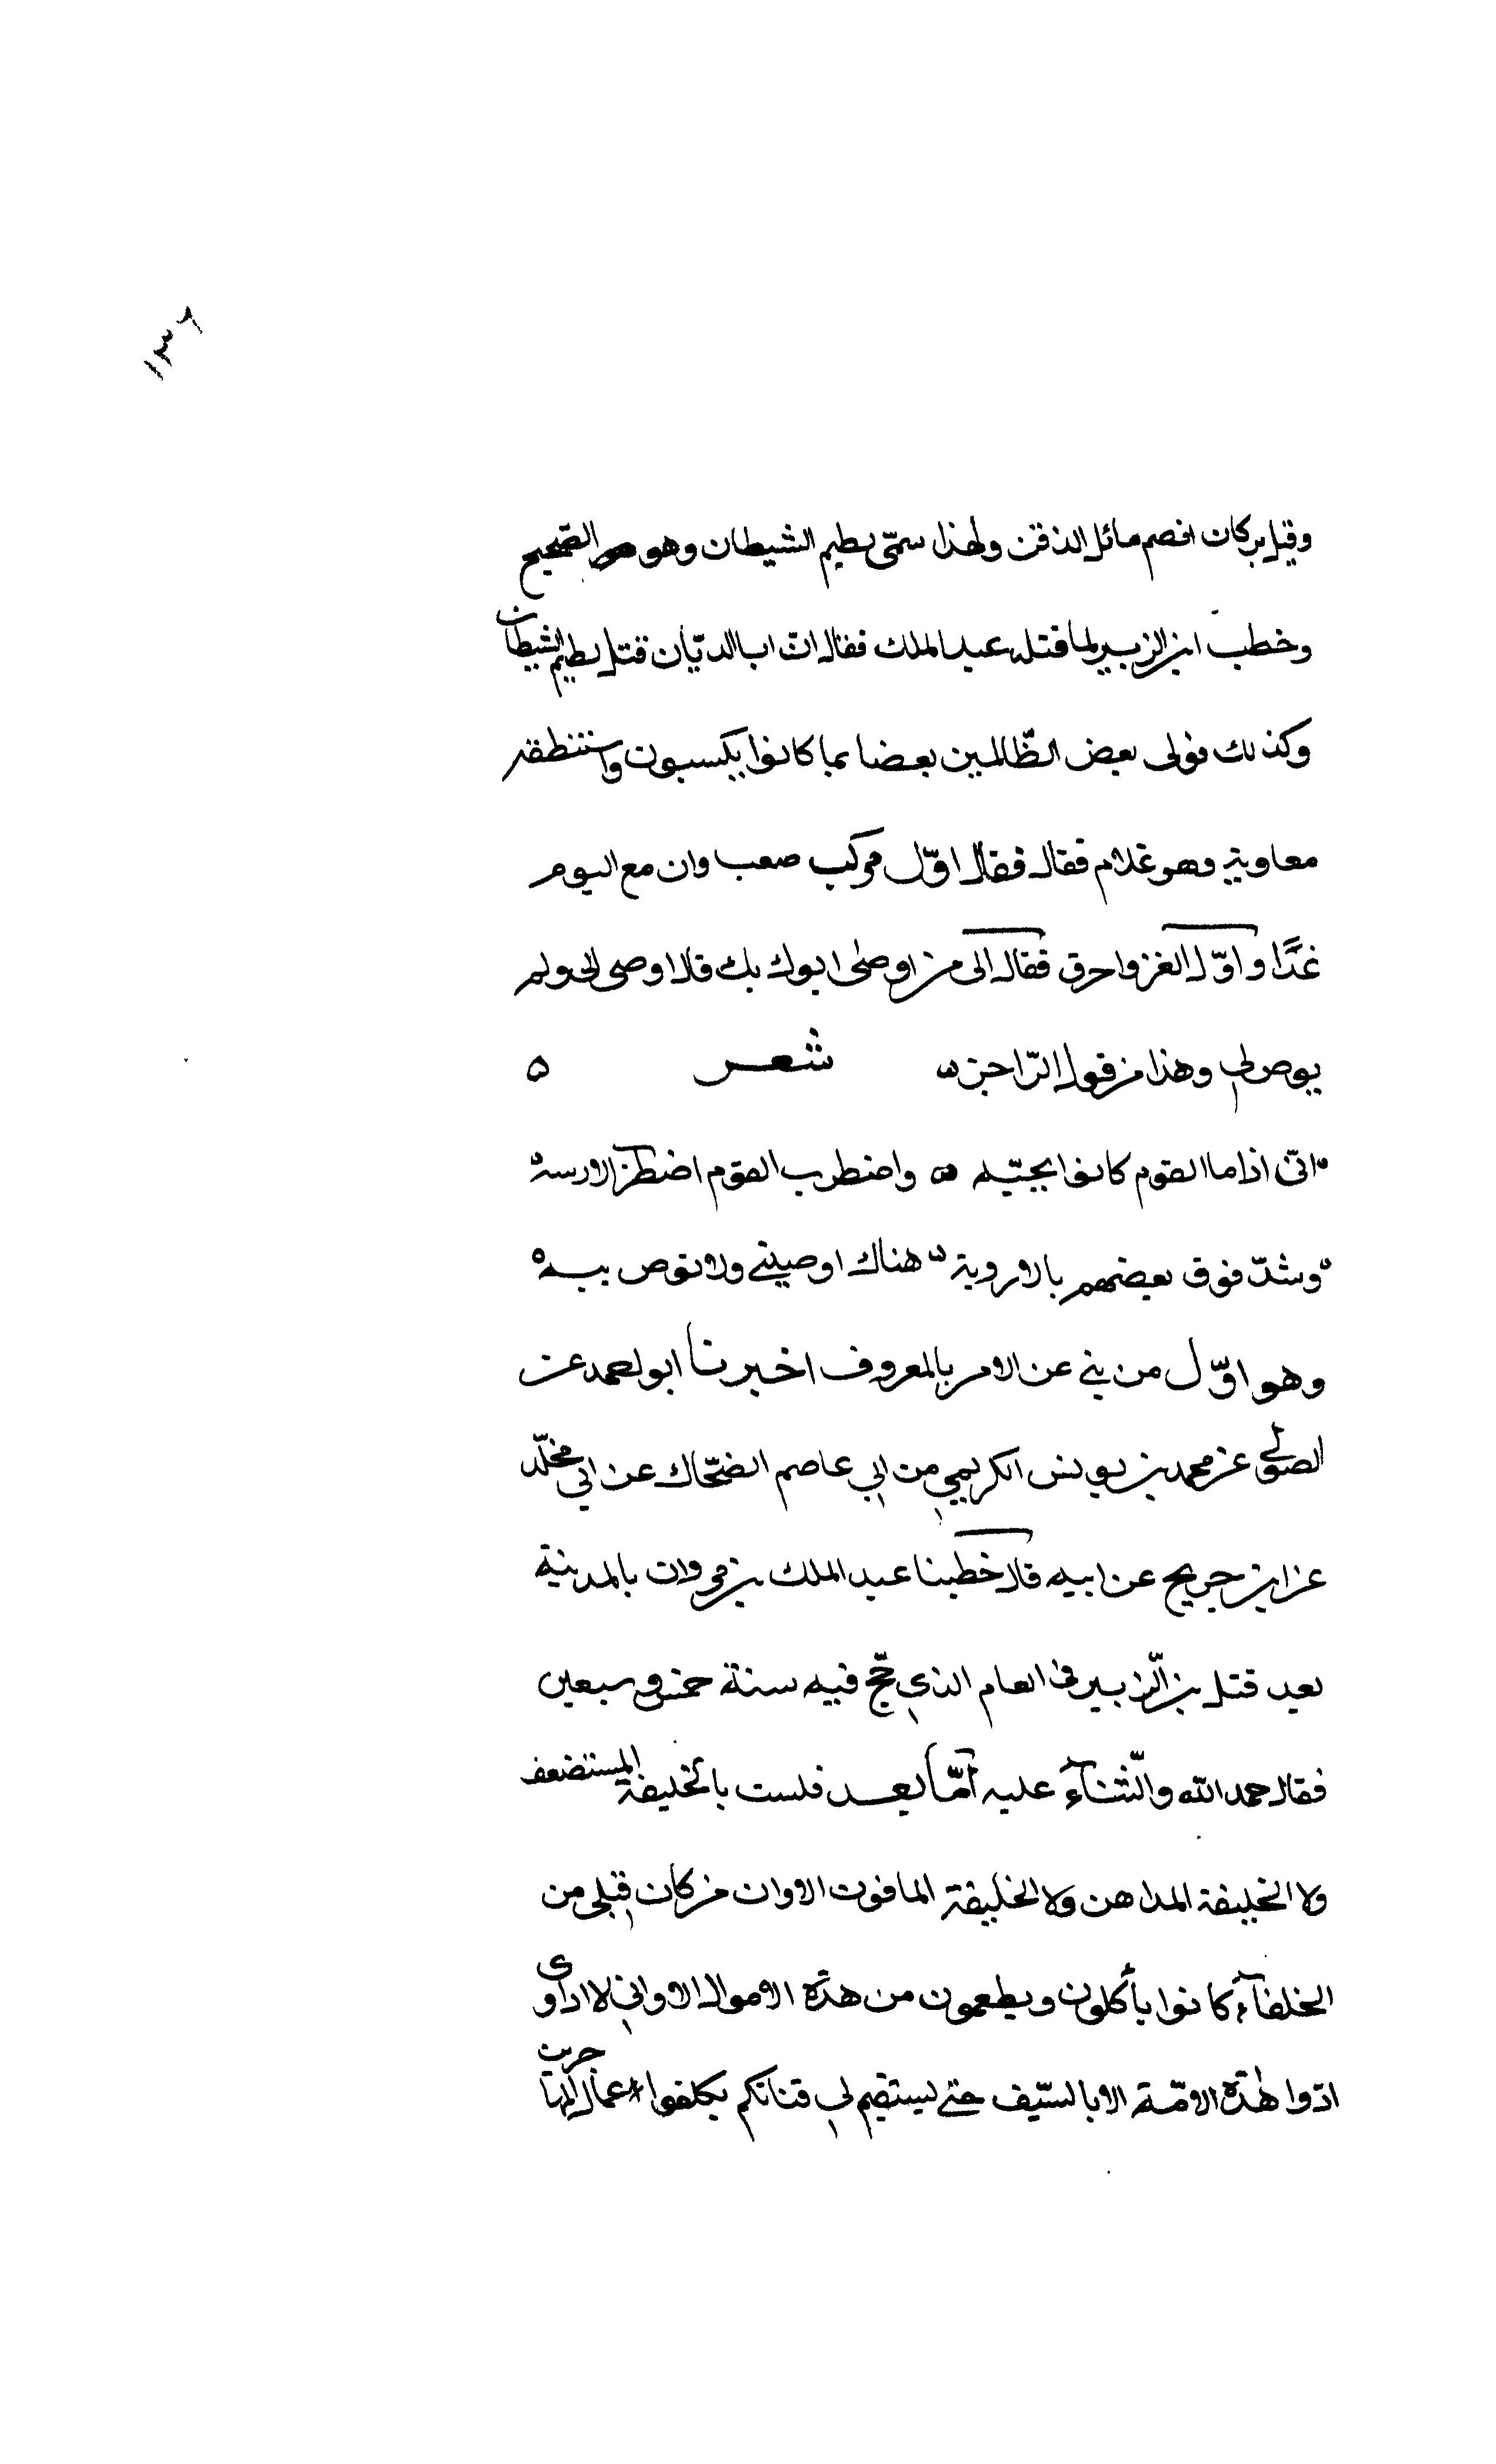 ١٣٦
وقيل بر كان افصم مائل الذقن ولهذا سمّى بطيم الشيطان وهو الصّحيح
وخطب ابن الزبير لما قتله عبد الملك فقال انّ ابا الديّان قتل بطيم الشيطان
وكذلك نولى بعض الظّالمين بعضا بما كانوا يكسبون واستنطقه
معاوية وهو غلام فقال فقال اوّل مركب صعب وان مع اليوم
غدًا واوّل الغزو احرق فقال الى من اوصى ابوك بك قال اوصى الىّ ولم
يوص لي وهذا من قول الرّاجز شعر
انّى اذا ما القوم كانوا بجيّه واضطرب القوم اضطراز الارسه
وشدّ فوق بعضهم بالاروية هناك اوصيني ولا توص بيه
وهو اوّل من نهى عن الامر بالمعروف اخبرنا ابو احمد عن
الصولي عن محمد بن يونس الكريمي من ابي عاصم الضحّاك عن ابي مخلّد
عن ابن جريح عن ابيه قال خطبنا عبد الملك بن مروان بالمدينة
بعد قتل بن الزّبير فى العام الذي حجّ فيه سنة خمس وسبعين
فقال حمد الله والثّنآء عليه امّا بعد فلست بالخليفة المستضعف
ولا الخليفة المداهن ولا الخليفة المافون الا وان من كان قبلي من
الخلفآء كانوا يأكلون ويطعمون من هذه الاموال الا واني لا اداوى
ادوا هذه الامّة الا بالسّيف حتى يستقيم لي قناتكم يكلفوا اعمال المهاجرين